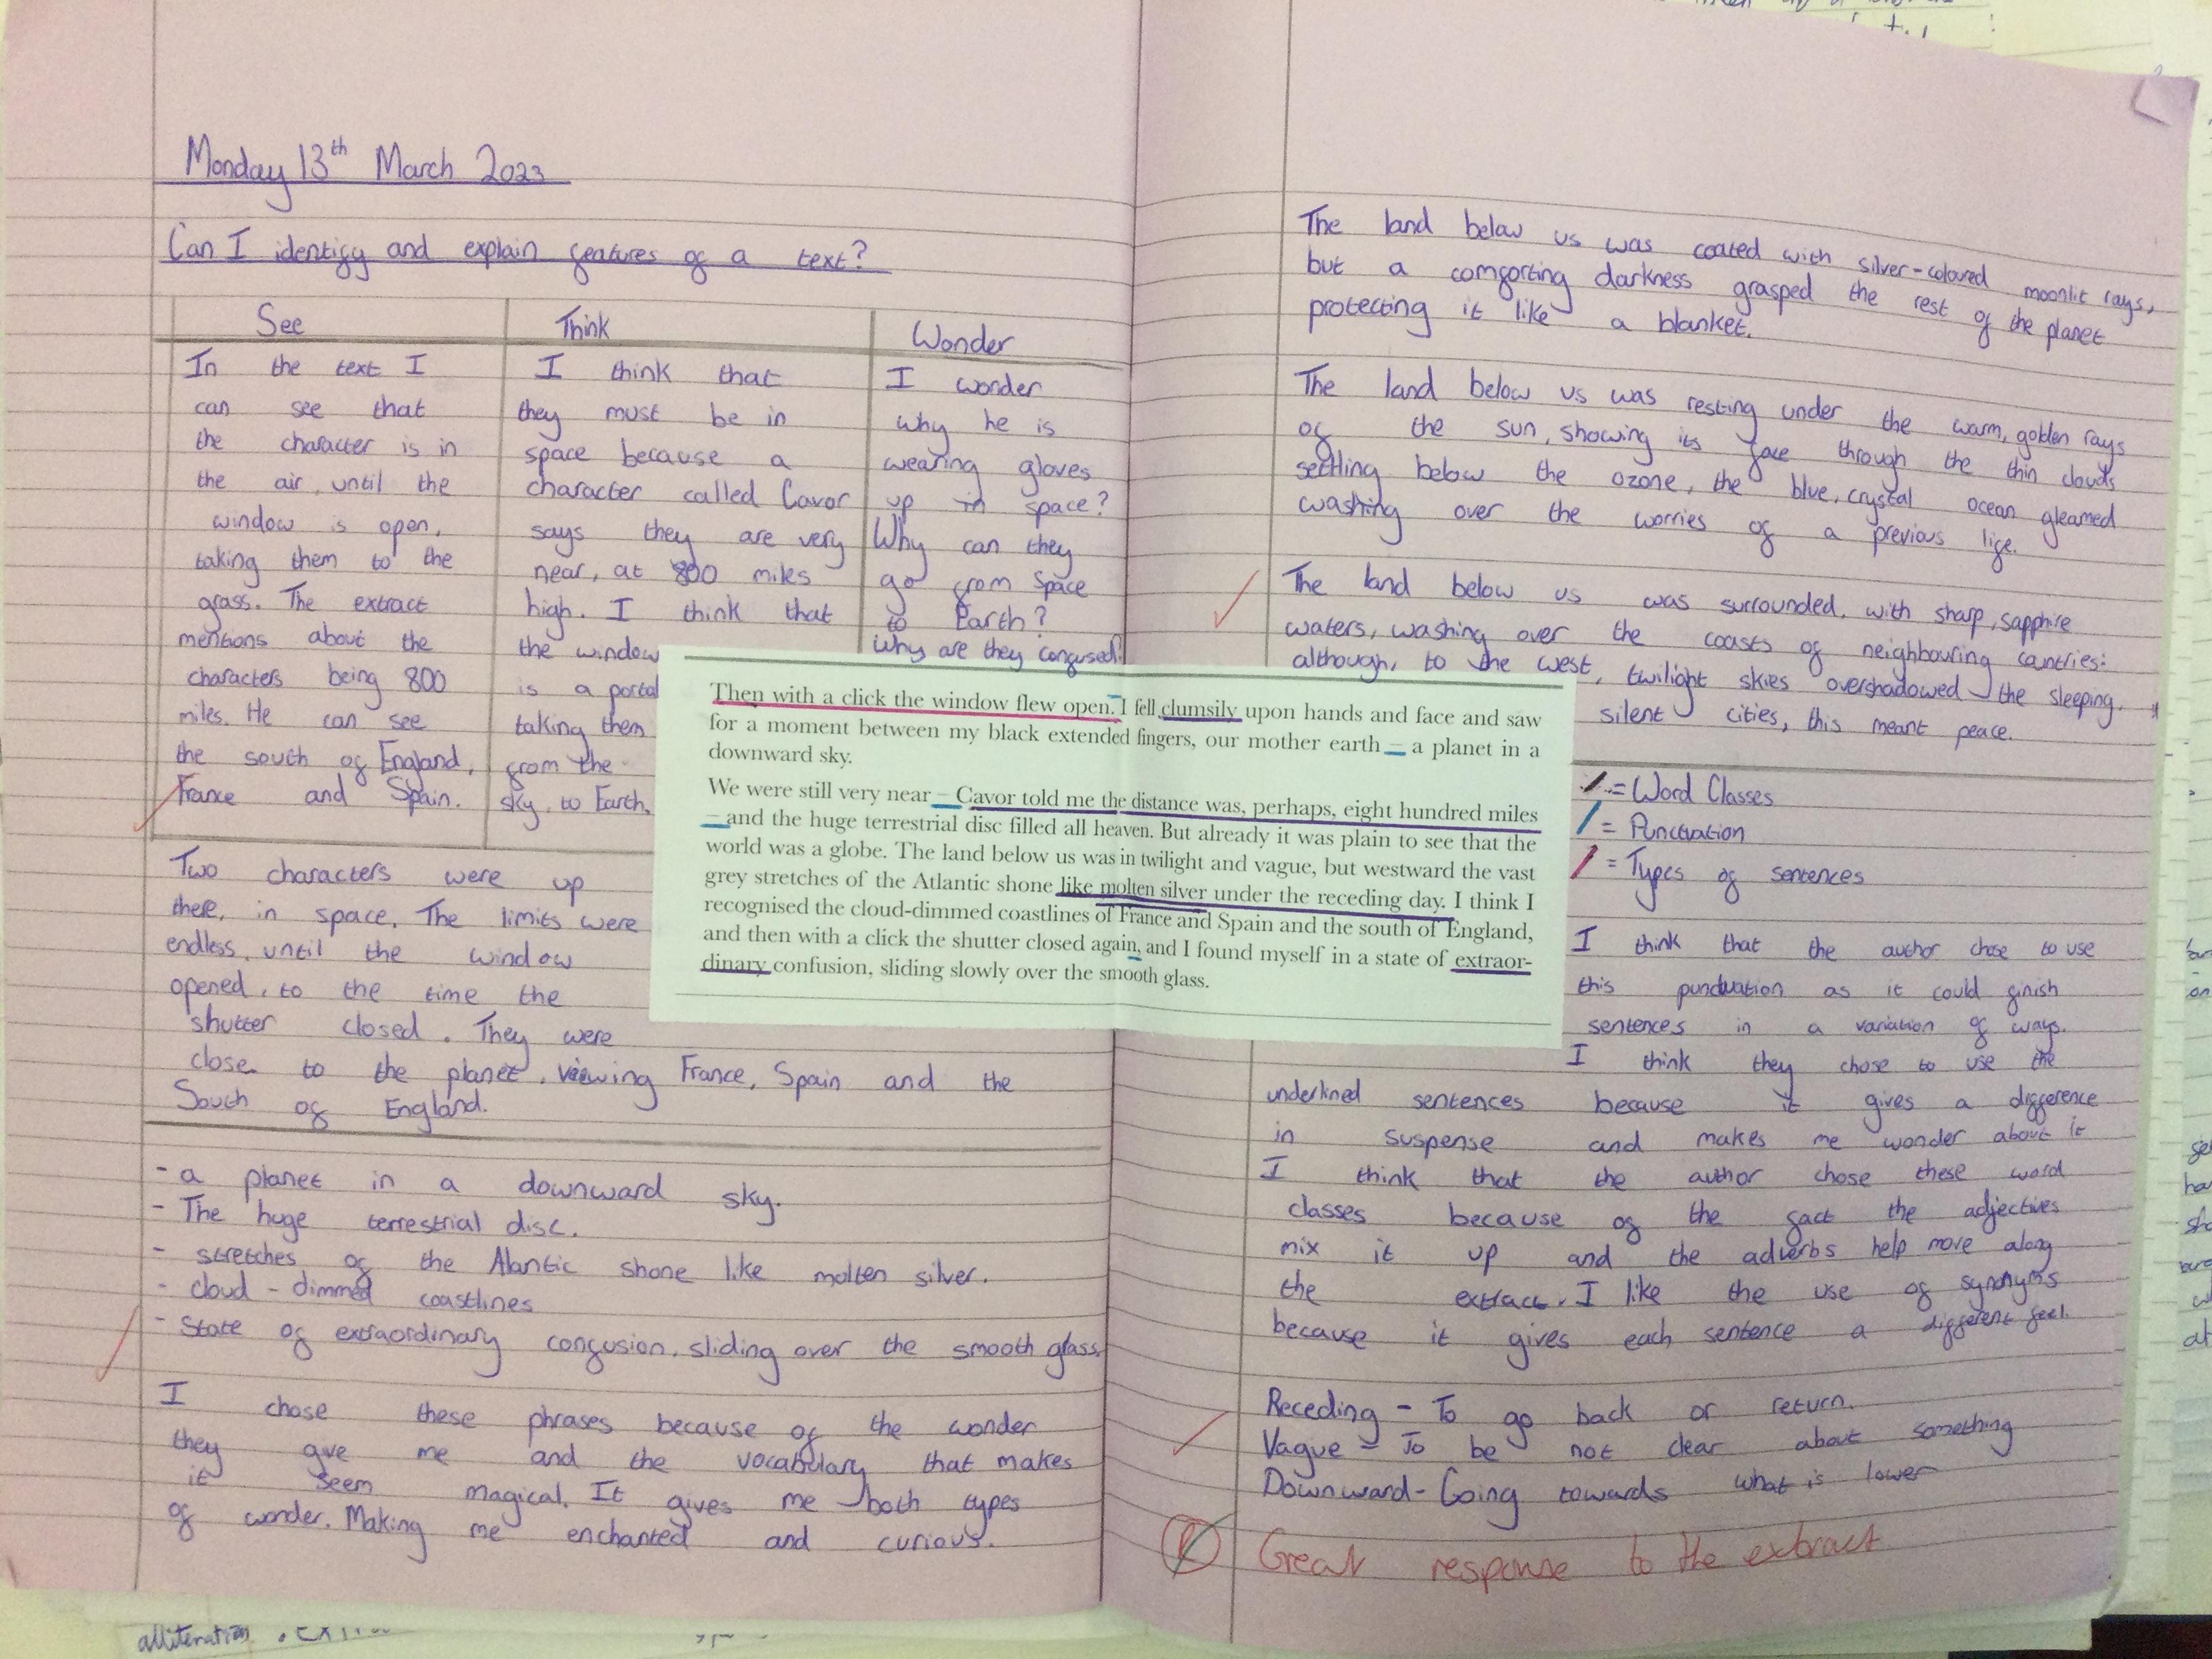 Monday 13th March 2023
Can I identify and explain features of a text?
See
In the text I
can see that
the character is in
the air, until the
window is open,
taking them to the
grass. The extract
mentions about the
characters being 800
miles. He can see
the south of England,
France and Spain.
Think
I think that
they must be in
space because a
character called Cavor
says they are very
near, at 800 miles
high. I think that
the window
is a portal
taking them
from the
sky, to Earth.
Wonder
I wonder
why he is
wearing gloves
up in space?
Why can they
go from space
to Earth?
Why are they confused?
Two characters were up
there, in space. The limits were
endless, until the window
opened, to the time the
shutter closed. They were
close to the planet, viewing France, Spain and the
South of England.
- a planet in a downward sky.
- The huge terrestrial disc.
- stretches of the Alantic shone like molten silver.
- cloud-dimmed coastlines
- State of extraordinary confusion, sliding over the smooth glass.
I chose these phrases because of the wonder
they give me and the vocabulary that makes
it seem magical. It gives me both types
of wonder. Making me enchanted and curious.
Then with a click the window flew open. I fell clumsily upon hands and face and saw
for a moment between my black extended fingers, our mother earth – a planet in a
downward sky.
We were still very near – Cavor told me the distance was, perhaps, eight hundred miles
– and the huge terrestrial disc filled all heaven. But already it was plain to see that the
world was a globe. The land below us was in twilight and vague, but westward the vast
grey stretches of the Atlantic shone like molten silver under the receding day. I think I
recognised the cloud-dimmed coastlines of France and Spain and the south of England,
and then with a click the shutter closed again, and I found myself in a state of extraor-
dinary confusion, sliding slowly over the smooth glass.
The land below us was coated with silver-coloured moonlit rays,
but a comforting darkness grasped the rest of the planet
protecting it like a blanket.
The land below us was resting under the warm, golden rays
of the sun, showing its face through the thin clouds
settling below the ozone, the blue, crystal ocean gleamed
washing over the worries of a previous life.
The land below us was surrounded, with sharp, sapphire
waters, washing over the coasts of neighbouring cantries:
although, to the west, twilight skies overshadowed the sleeping,
silent cities, this meant peace.
/ = Word Classes
/ = Punctuation
/ = Types of sentences
I think that the author chose to use
this punctuation as it could finish
sentences in a variation of ways.
I think they chose to use the
underlined sentences because it gives a difference
in suspense and makes me wonder about it
I think that the author chose these word
classes because of the fact the adjectives
mix it up and the adverbs help move along
the extract. I like the use of synonyms
because it gives each sentence a different feel.
Receding - To go back or return.
Vague - To be not clear about something
Downward - Going towards what is lower
Great response to the extract
alliteration